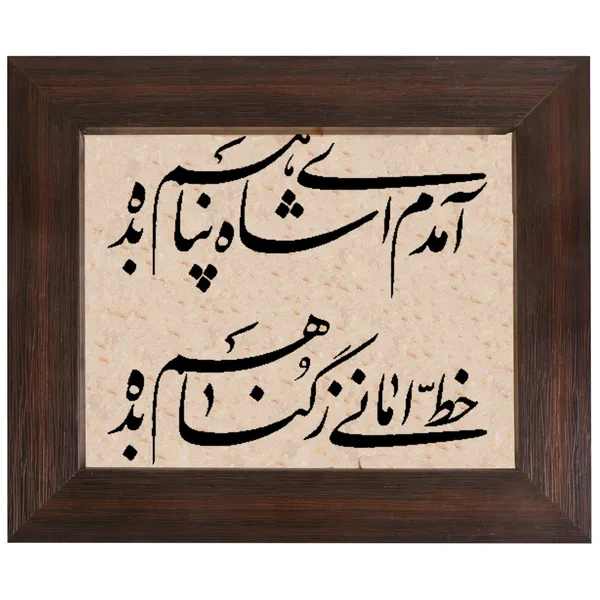 آمدم ای شاه پناهم بده
خطّ امانی ز گناهم بده